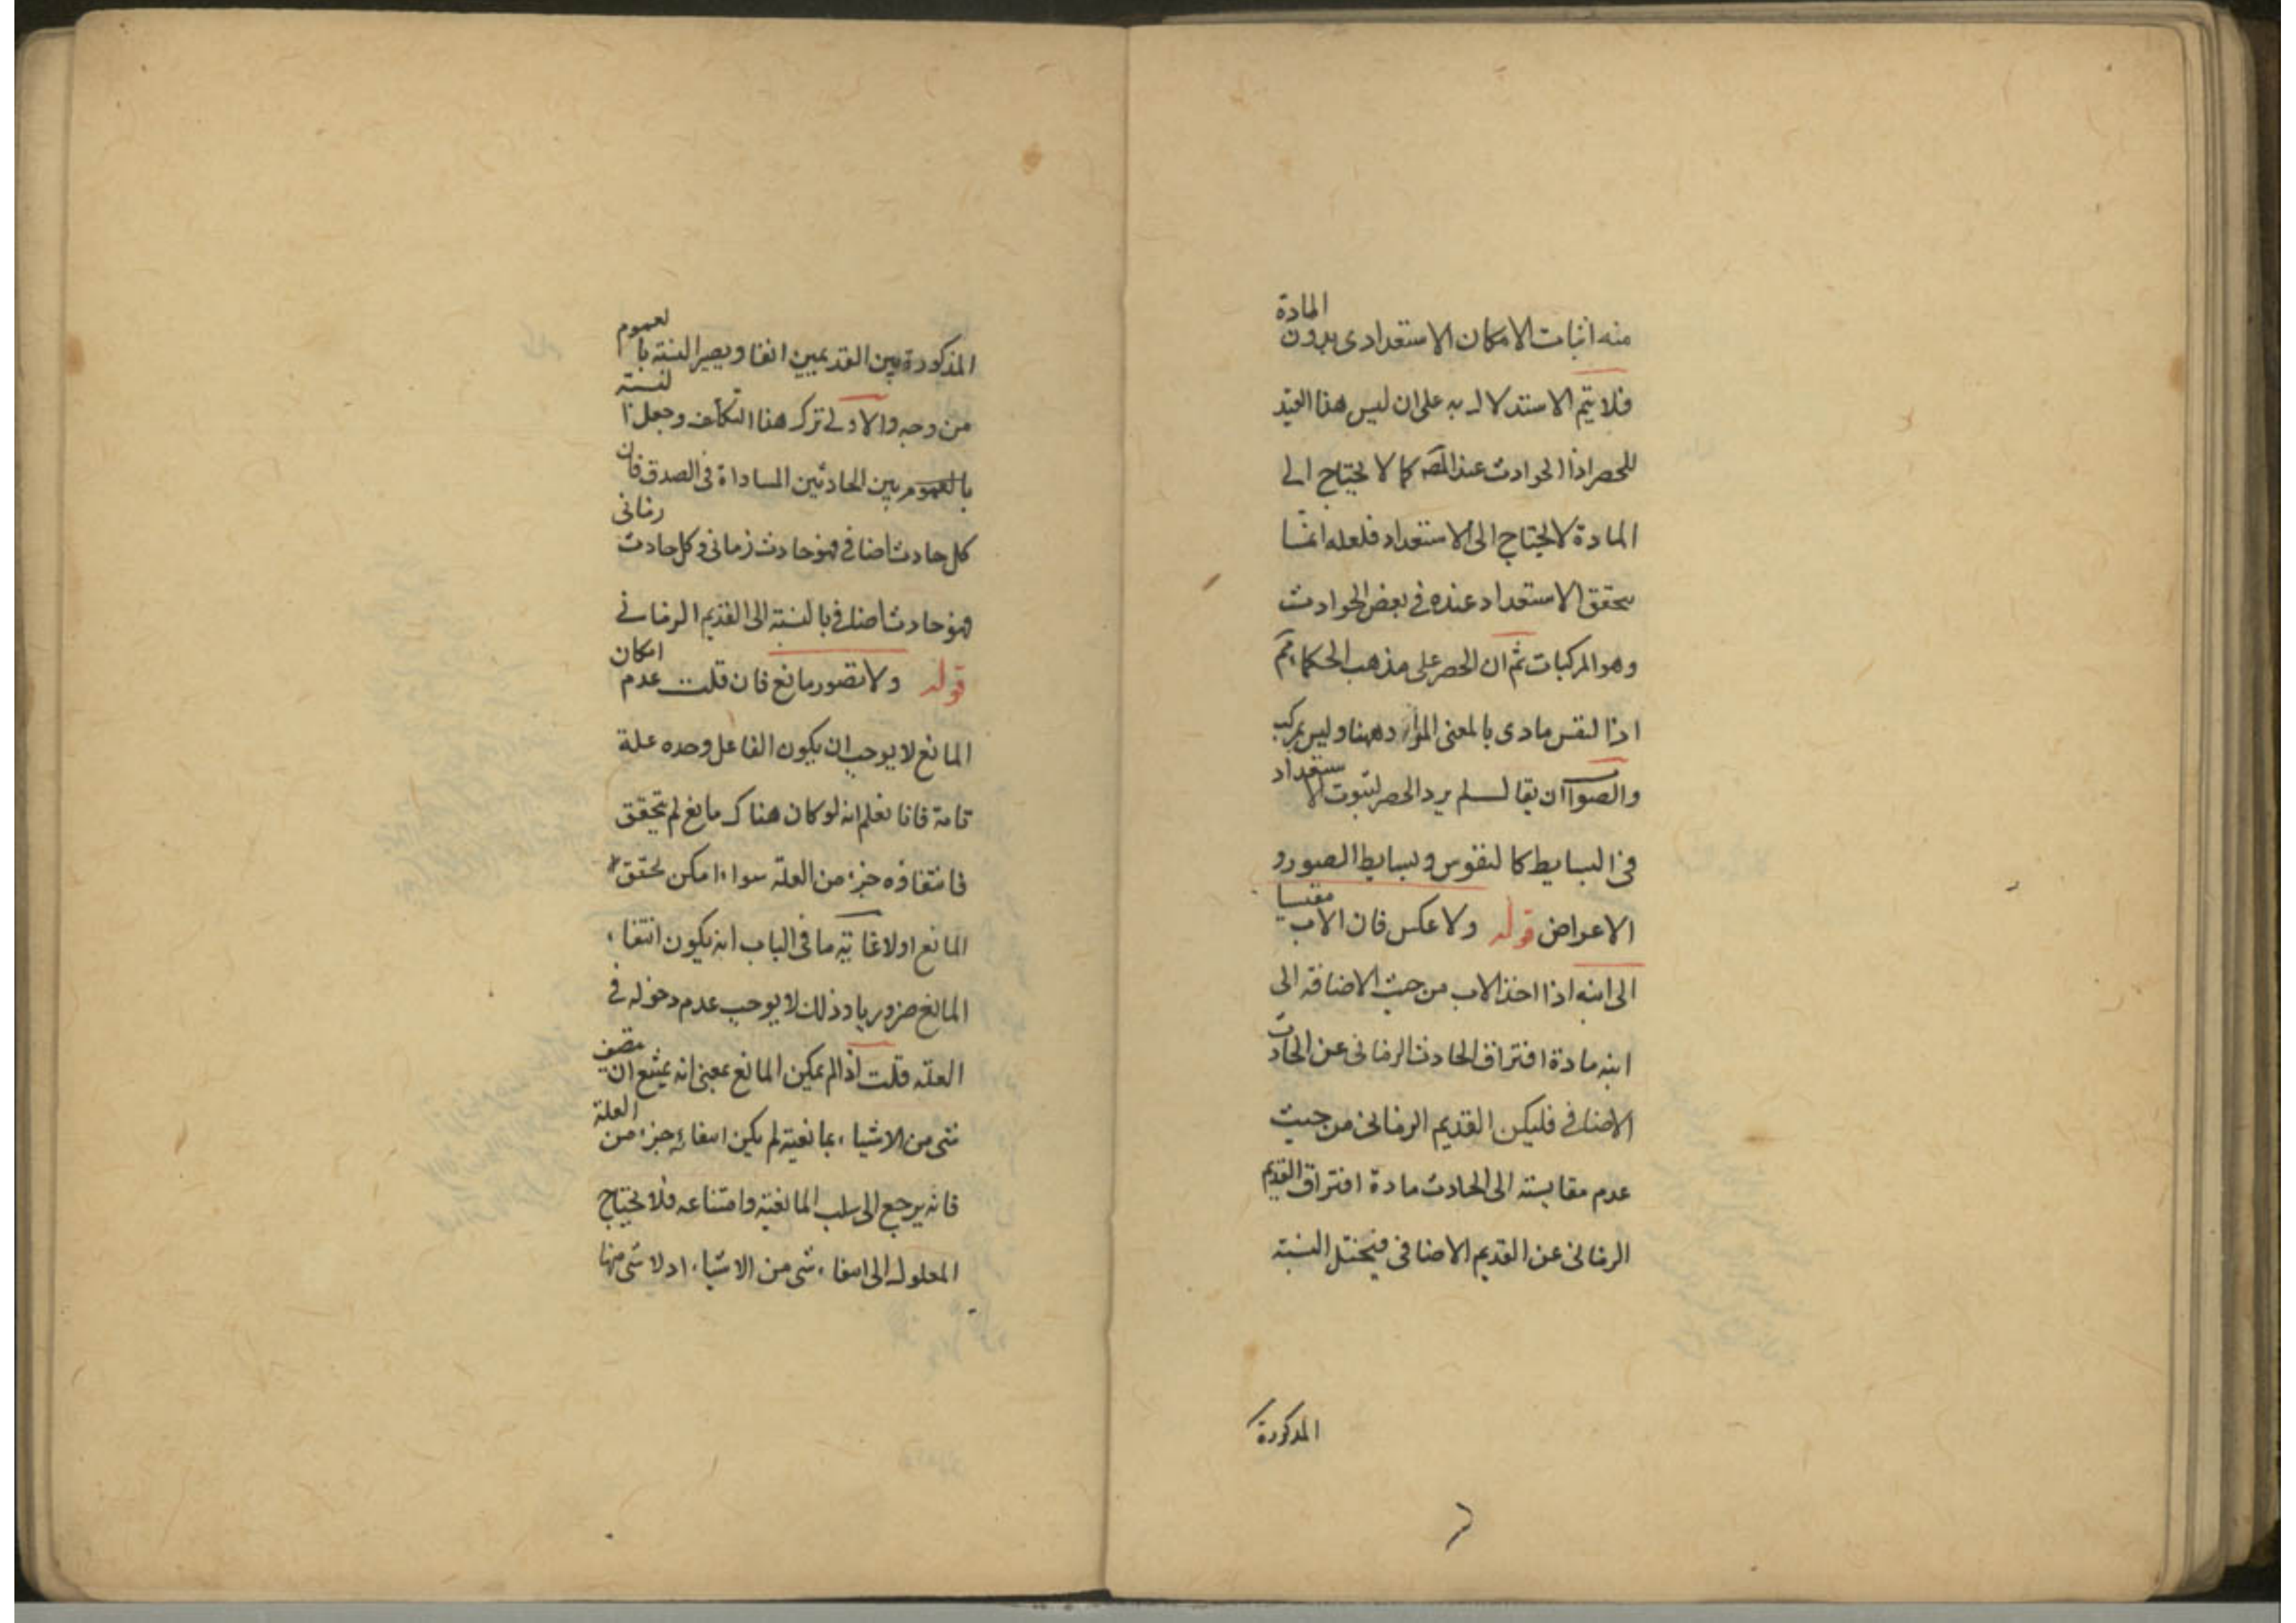 منه اثبات الامكان الاستعدادى بدون المادة
فلا يتم الاستدلال به على ان ليس هذا القيد
للحصر اذا الحوادث عند المصه كما لا يحتاج الى
المادة لا يحتاج الى الاستعداد فلعله انما
يتحقق الاستعداد عنده فى بعض الحوادث
وهو المركبات ثم ان الحصر على مذهب الحكماء
اذ النفس مادى بالمعنى المراد ههنا وليس بمركب
والصواب ان يقال لم يرد الحصر لثبوت الاستعداد
فى البسايط كالنفوس وبسايط الصور و
الاعراض قوله ولا عكس فان الاب مقيسا
الى ابنه اذا اخذ الاب من حيث الاضافة الى
ابنه مادة افتراق الحادث الزمانى عن الحادث
الاضافى فليكن القديم الزمانى من حيث
عدم مقايسته الى الحادث مادة افتراق القديم
الزمانى عن القديم الاضافى فيختل النسبة
المذكورة
المذكورة بين القديمين انفا ويصير النسبة بالعموم
من وجه والاولى ترك هذا التكلف وجعل النسبة
بالعموم بين الحادثين المساواة فى الصدق فان
كل حادث اضافى فهو حادث زمانى وكل حادث زمانى
فهو حادث اضافى بالنسبة الى القديم الزمانى
قوله ولا تصور مانع فان قلت عدم امكان
المانع لا يوجب ان يكون الفاعل وحده علة
تامة فانا نعلم انه لو كان هناك مانع لم يتحقق
فانتفاؤه جزء من العلة سواء امكن تحقق
المانع اولا غاية ما فى الباب انه يكون انتفاء
المانع ضروريا وذلك لا يوجب عدم دخوله فى
العلة قلت اذا لم يمكن المانع بمعنى انه يمتنع ان يتصف
شى من الاشياء بمانعية لم يكن انتفائه جزء من العلة
فانه يرجع الى سلب المانعية وامتناعه فلا يحتاج
المعلول الى انتفاء شى من الاشياء اذ لا شى منها